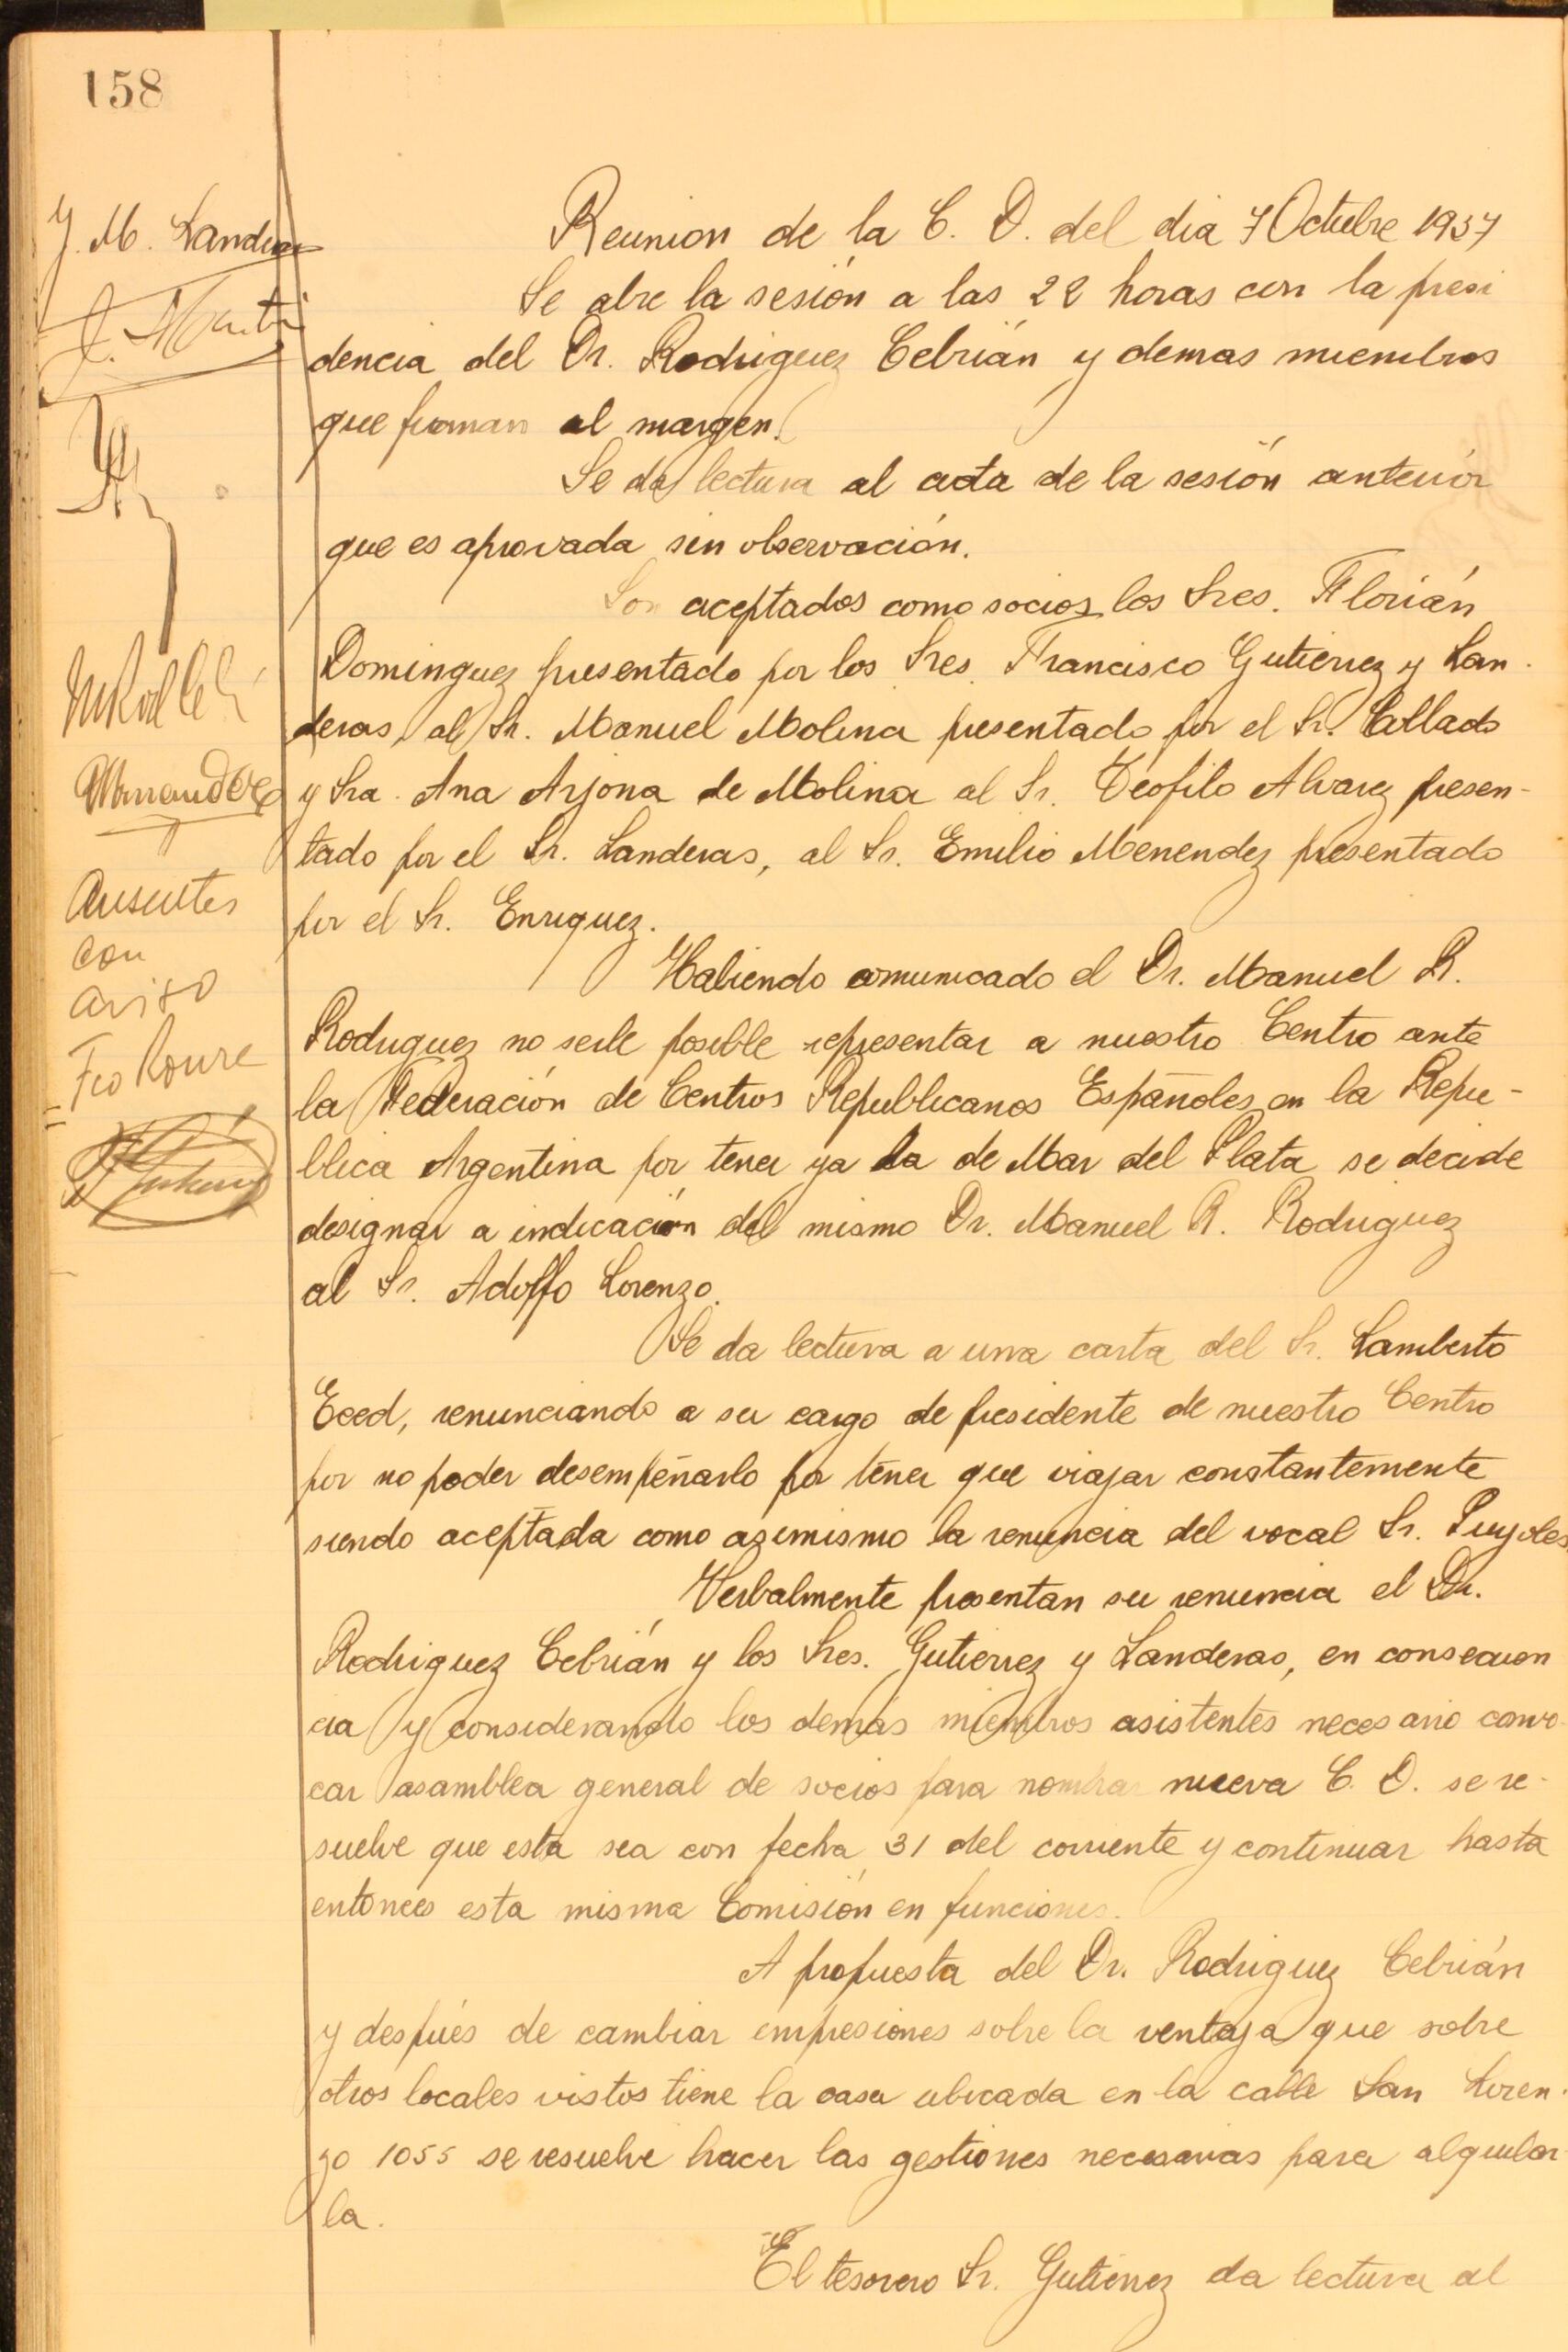 158
J. M. Landeras
Reunion de la C. D. del dia 7 Octubre 1937
Se abre la sesión a las 22 horas con la presi
dencia del Dr. Rodriguez Cebrián y demas miembros
que firman al margen.
Se da lectura al acta de la sesión anterior
que es aprovada sin observación.
Son aceptados como socios los Sres. Florián
Dominguez presentado por los Sres. Francisco Gutierrez y Lan-
deras, al Sr. Manuel Molina presentado por el Sr. Collado
y Sra. Ana Arjona de Molina al Sr. Teofilo Alvarez presen-
tado por el Sr. Landeras, al Sr. Emilio Menendez presentado
por el Sr. Enriquez.
Ausentes
con
aviso
Fco Roure
Habiendo comunicado el Dr. Manuel R.
Rodriguez no serle posible representar a nuestro Centro ante
la Federación de Centros Republicanos Españoles en la Repu-
blica Argentina por tener ya la de Mar del Plata se decide
designar a indicación del mismo Dr. Manuel R. Rodriguez
al Sr. Adolfo Lorenzo.
Se da lectura a una carta del Sr. Lamberto
Eced, renunciando a su cargo de presidente de nuestro Centro
por no poder desempeñarlo por tener que viajar constantemente
siendo aceptada como asimismo la renuncia del vocal Sr. Puyoles
Verbalmente presentan su renuncia el Dr.
Rodriguez Cebrián y los Sres. Gutierrez y Landeras, en consecuen
cia y considerando los demás miembros asistentes necesario convo-
car asamblea general de socios para nombrar nueva C. D. se re-
suelve que esta sea con fecha 31 del corriente y continuar hasta
entonces esta misma Comisión en funciones.
A propuesta del Dr. Rodriguez Cebrián
y después de cambiar impresiones sobre la ventaja que sobre
otros locales vistos tiene la casa ubicada en la calle San Loren-
zo 1055 se resuelve hacer las gestiones necesarias para alquilar-
la.
El tesorero Sr. Gutierrez da lectura al